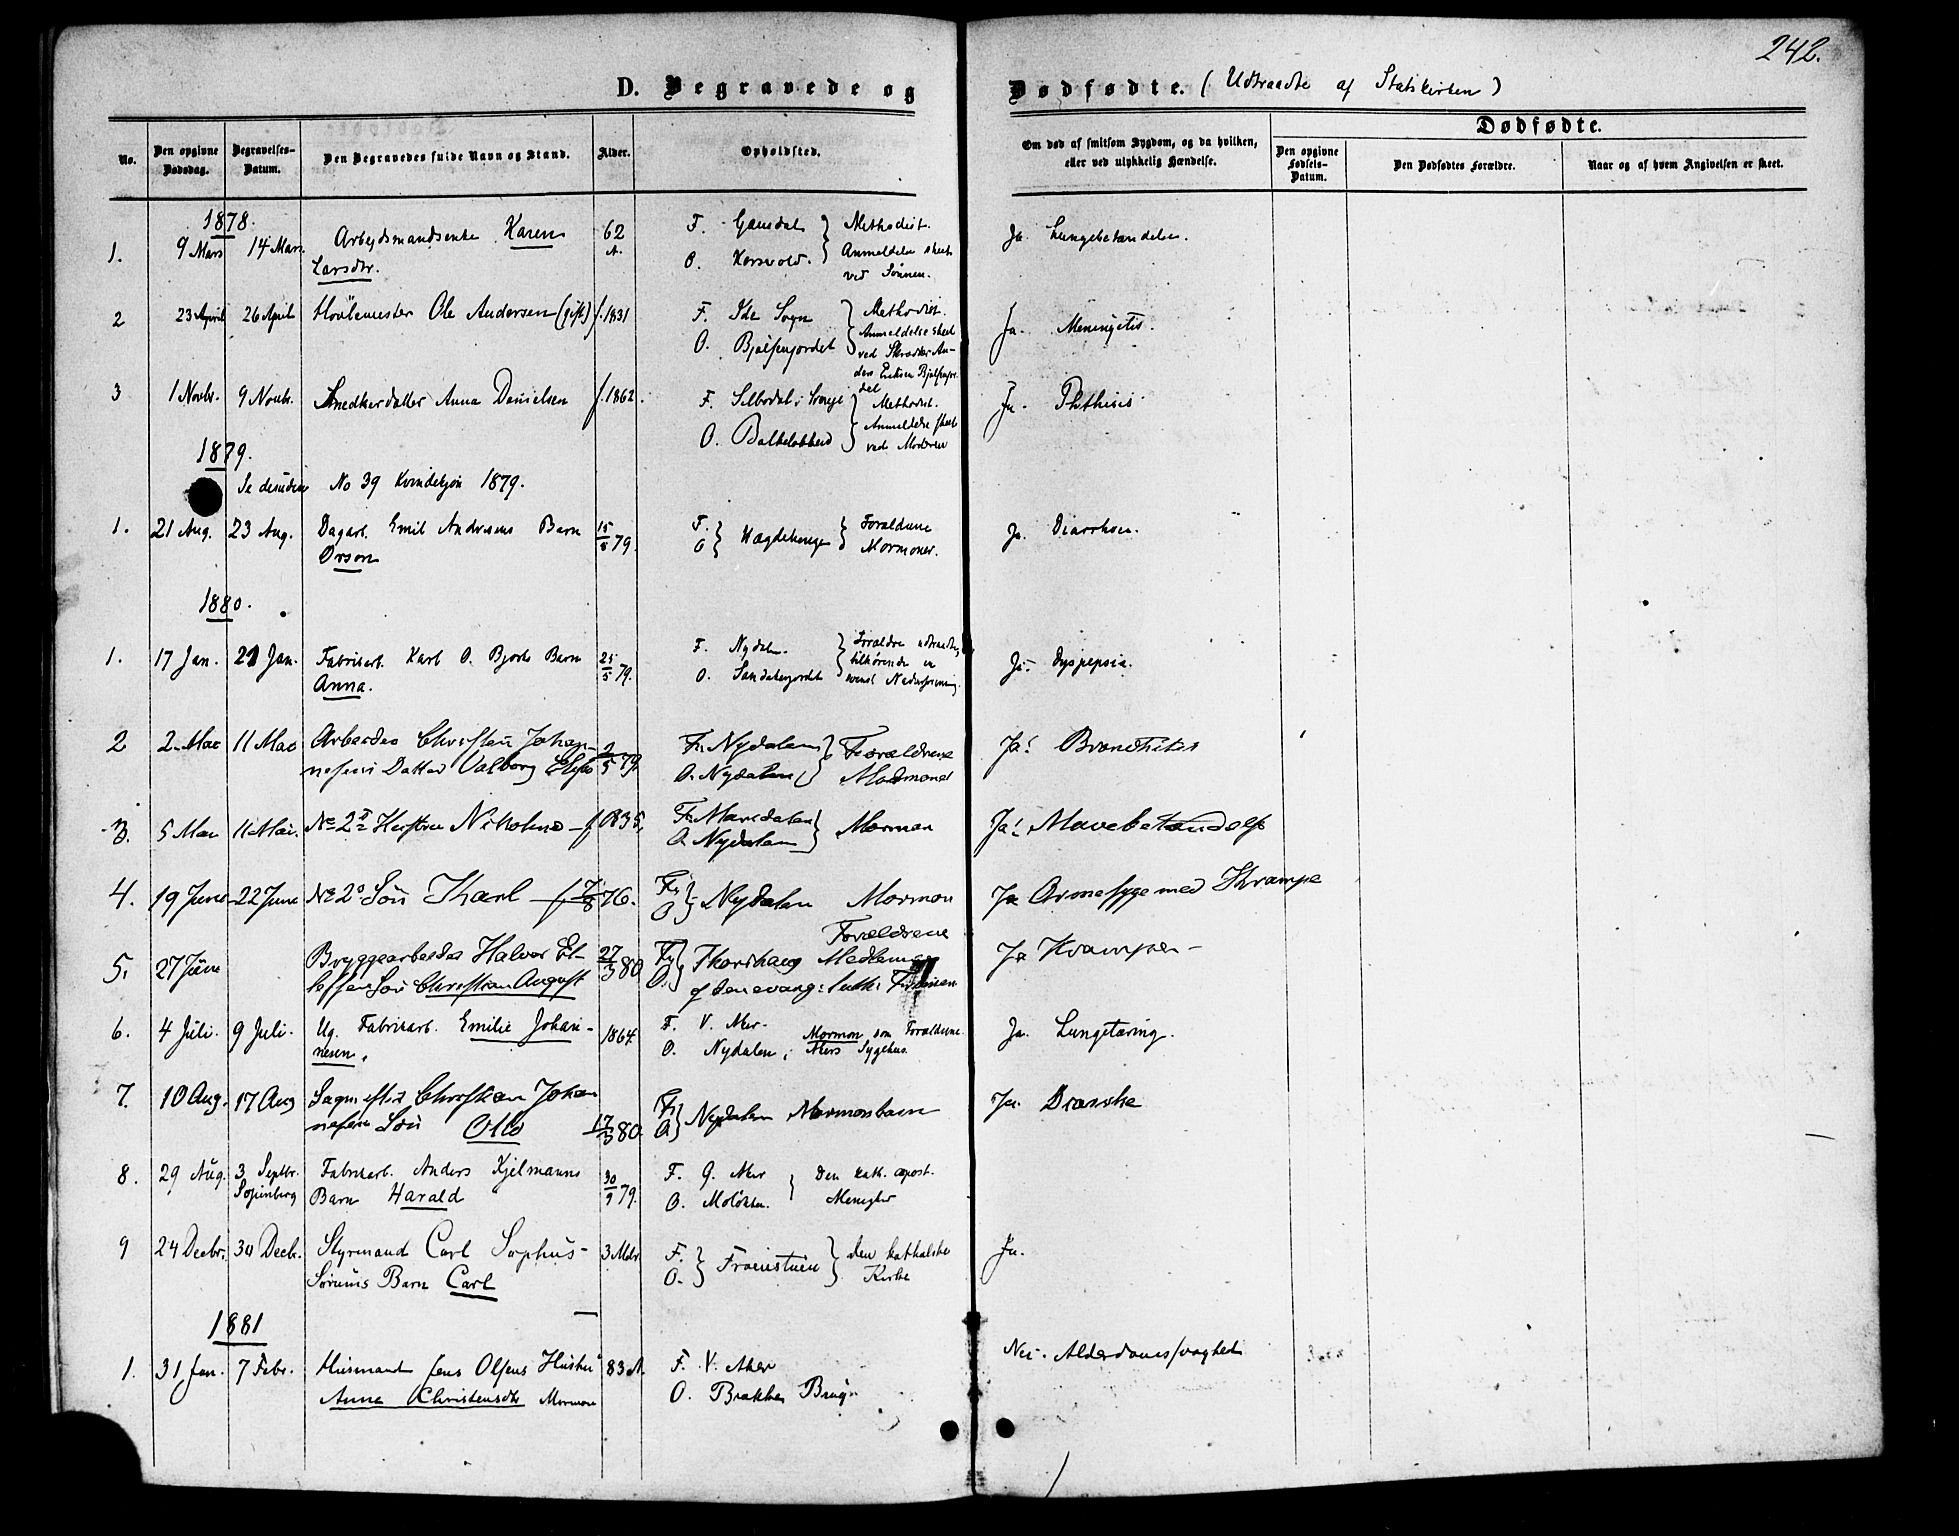 242.
D. Begravede og Dødfødte. (Udtraadte af Statskirken)
No.
Den opgivne Dødsdag.
Begravelses-Datum.
Den Begravedes fulde Navn og Stand.
Alder.
Opholdsted.
Om død af smitsom Sygdom, og da hvilken,
eller ved ulykkelig Hændelse.
Dødfødte.
Den opgivne Fødsels-Datum.
Den Dødfødtes Forældre.
Naar og af hvem Angivelsen er skeet.
1878.
1. 9 Mars 14 Mars Arbejdsmandsenke Karen 62 A. F. Gausdal } Methodist. Ja. Lungebetændelse.
Larsdtr. O. Korsvold. } Anmeldelse skeet
ved Sønnen.
2 23 April 26 April Høvlemester Ole Andersen (gift) f. 1831 F. Ide Sogn } Methodist. Ja. Meningitis.
O. Bjølsenjordet } Anmeldelse skeet
ved Skræder An-
ders Eriksen
3 1 Novbr. 9 Novbr. Snedkerdatter Anna Danielsen f. 1862. F. Silbodal i Sverige } Methodist. Ja. Phthisis
O. } Anmeldelse skeet
ved Moderen
1879.
Se desuden No 39 Kvindekjøn 1879.
1. 21 Aug. 23 Aug. Dagarb. Emil Andersens Barn 15/5 79. F. } } Forældrene Ja. Diarrhoe.
Orson O } Mormoner.
1880.
1. 17 Jan. 21 Jan. Fabrikarb. Karl O. Bjorks Barn 25/5 79. F. Nydalen. } Forældre udtraadte, Ja. Dyspepsia.
Anna. O. Sandakerjordet } tilhørende en
svensk
2 2 Mar 11 Mar Arbeider Christen Johan- 2/5 79 F. Nydalen } Forældrene Ja! Bronchitis
nesens Datter Valborg O. Nydalen } Mormoner
3. 5 Mar 11 Mar. No 2s Hustru Nikoline f 1835. F. Maridalen } Mormon Ja! Mavebetændelse
O. Nydalen
4. 19 Juni 22 June No 2s Søn Karl f 7/8 76. F. O } Nydalen Mormon Ja Ormesyge med Krampe
5. 27 June Bryggearbeider Halvor El- 27/3 80 F. O. } Thorshaug Forældrene Medlemer Ja Krampe
Søn Christian August af den evang: luth: Frikirken
6. 4 Juli. 9 Juli. Ug. Fabrikarb. Emilie Johan- 1864. F. V. Aker. Mormon som Forældrene. Ja. Lungetæring.
nesen. O. Nydalen, Akers Sygehus.
7. 10 Aug. 17 Aug Christian Johan- F. O } Nydalen Mormonbarn Ja.
nesens Søn Otto 17/3 80.
8. 29 Aug. 3 Septbr. Fabrikarb. Anders Kjelmanns 30/9 79. F. G. Aker } Den kath. apost.
Barn Harald O. } Menighed
9 24 Decbr. 30 Decb. Styrmand Carl Sophus- 3 Mdr F. O. } Froenstuen } den katholske Ja.
Sørums Barn Carl Kirke
1881
1. 31 Jan. 7 Febr. Husmand Jens Olsens Hustru 83 A. F. V. Aker Nei. Alderdomssvaghed
Anna Christensdtr Mormon O. Brække Brug.